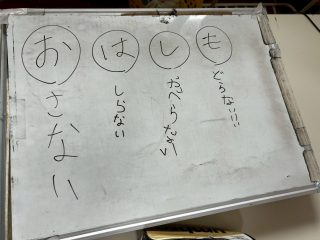 おさない
はしらない
しゃべらない
もどらない!!